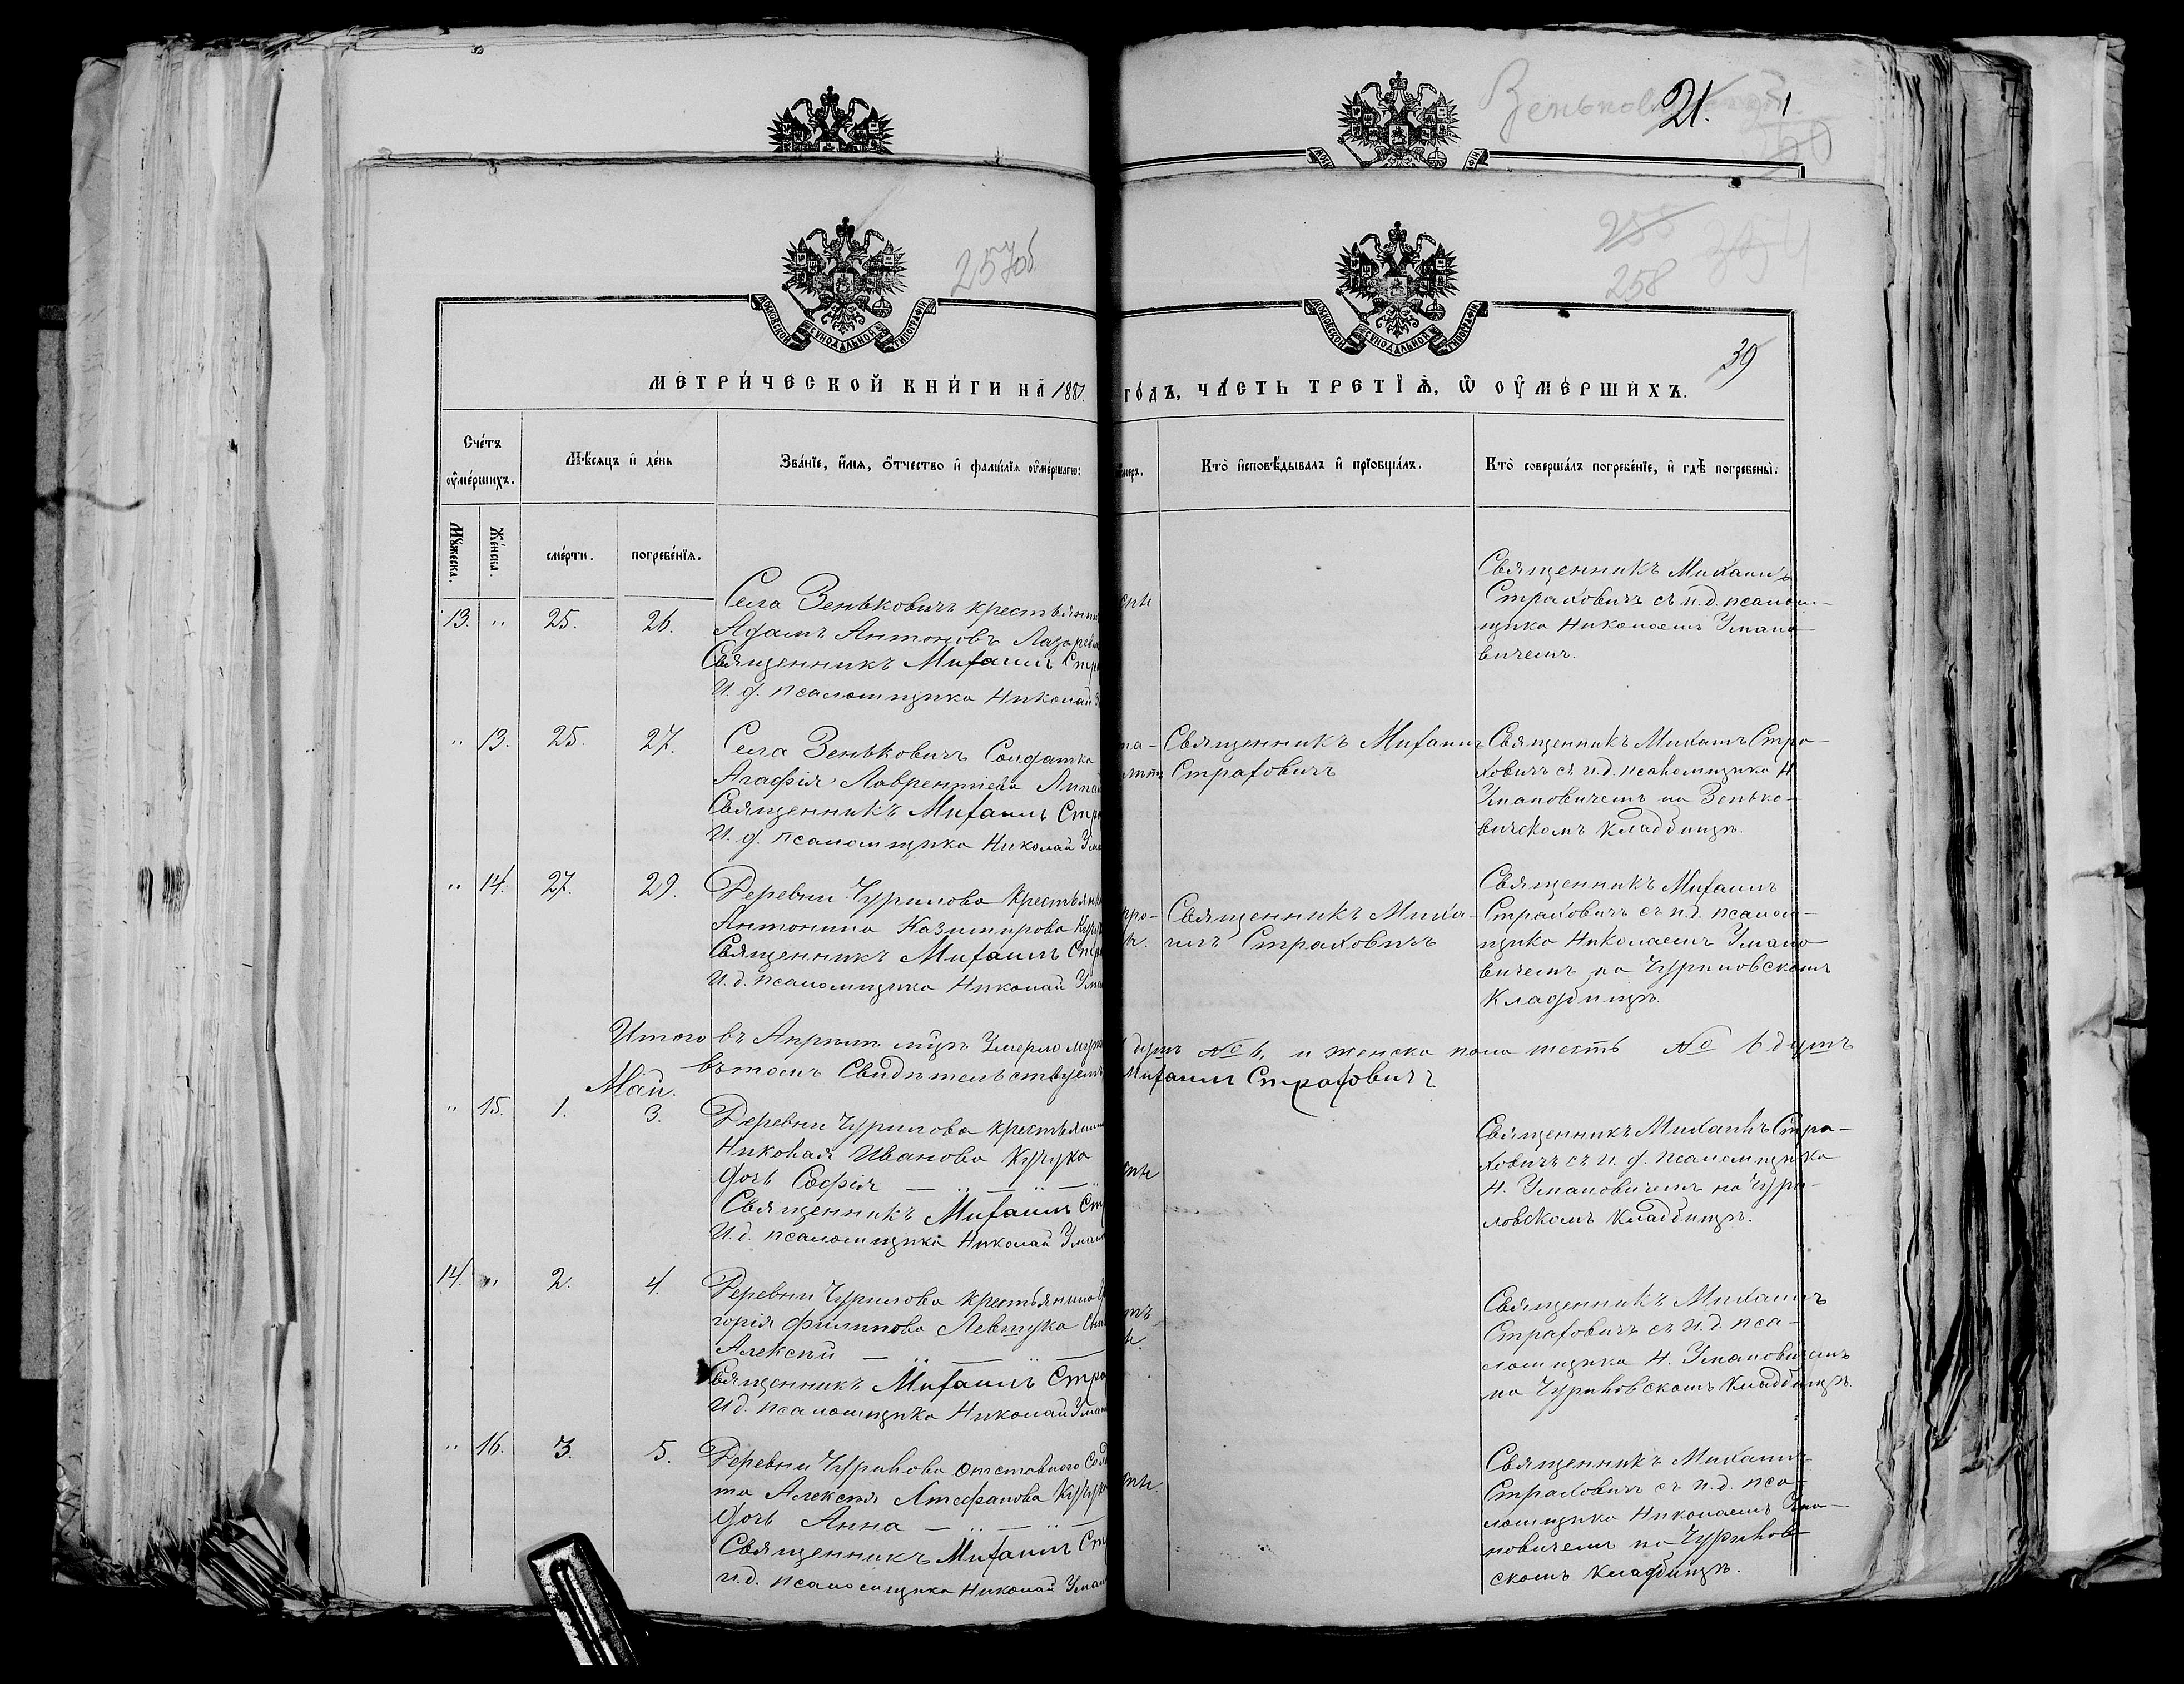 21.
257об
255
258
39
МОСКОВСКОЙ СУНОДАЛЬНОЙ ТИПОГРАФІИ
МОСКОВСКОЙ СУНОДАЛЬНОЙ ТИПОГРАФІИ
МЕТРИ́ЧЕСКОЙ КНИ́ГИ НА 188
ГО́ДЪ, ЧА́СТЬ ТРЕТІ́Ѧ, Ѡ ОУ҆МЕ́РШИХЪ.
Сче́тъ оу҆ме́ршихъ.
Мѣ́сѧцъ и҆ де́нь
Зва́нїе, и҆́мѧ, ѻ҆́тчество и҆ фамн́лїѧ оу҆ме́ршагѡ:
Кто̀ и҆сповѣ́дывалъ и҆ прїѡбща́лъ.
Кто̀ соверша́лъ погребе́нїе, и҆ гдѣ̀ погребены̀.
Мꙋ́жеска.
Же́нска.
сме́рти.
погребе́нїѧ.
13. " 25. 26.
Села Зеньковичъ крестьянин
Адамъ Антоновъ Лазореви
Священникъ Михаилъ Стра
И. д. псаломщика Николай
Священникъ Михаилъ
Страховичъ съ и. д. псалом-
щика Николаемъ Умано-
вичемъ.
" 13. 25. 27.
Села Зеньковичъ Солдатка
Агафія Лаврентіева
Священникъ Михаилъ Стра
И. д. псаломщика Николай Ума
Священникъ Михаилъ
Страховичъ
Священникъ Михаилъ Стра-
ховичъ съ и. д. псаломщика Н
Умановичемъ на Зенько-
вичскомъ кладбищѣ.
" 14. 27. 29.
Деревни Чурилова крестьянка
Антонина Казимирова
Священникъ Михаилъ Стра
И. д. псаломщика Николай Ума
Священникъ Миха-
илъ Страховичъ
Священникъ Михаилъ
Страховичъ съ и. д. псалом-
щика Николаемъ Умано-
вичемъ на Чуриловскомъ
кладбищѣ.
Итого въ Апрѣлѣ м-цѣ Умерло муж
душъ № 6, и женска пола шесть № 6 душъ
въ томъ Свидѣтельствуемъ
Михаилъ Страховичъ
Май.
" 15. 1. 3.
Деревни Чурилова крестьянин
Николая Иванова Кучука
дочь Софія — " — " — "
Священникъ Михаилъ Ст
И. д. псаломщика Николай Уман
Священникъ Михаилъ Стра-
ховичъ съ и. д. псаломщика
Н. Умановичемъ на Чури-
ловскомъ кладбищѣ.
14. " 2. 4.
Деревни Чурилова крестьянина Гри
горія Филипова Левшука сын
Алексѣй — " — " —
Священникъ Михаилъ Стра
И д. псаломщика Николай Уман
Священникъ Михаилъ
Страховичъ съ и. д. пса-
ломщика Н. Умановичемъ
на Чуриловскомъ кладбищѣ.
" 16. 3. 5.
Деревни Чурилова отставного Солда
та Алексѣя Стефанова Кучука
дочь Анна — " — " —
Священникъ Михаилъ Ст
и. д. псаломщика Николай Уман
Священникъ Михаилъ
Страховичъ съ и. д. пса-
ломщика Николаемъ Ума-
новичемъ на Чурилов-
скомъ кладбищѣ.